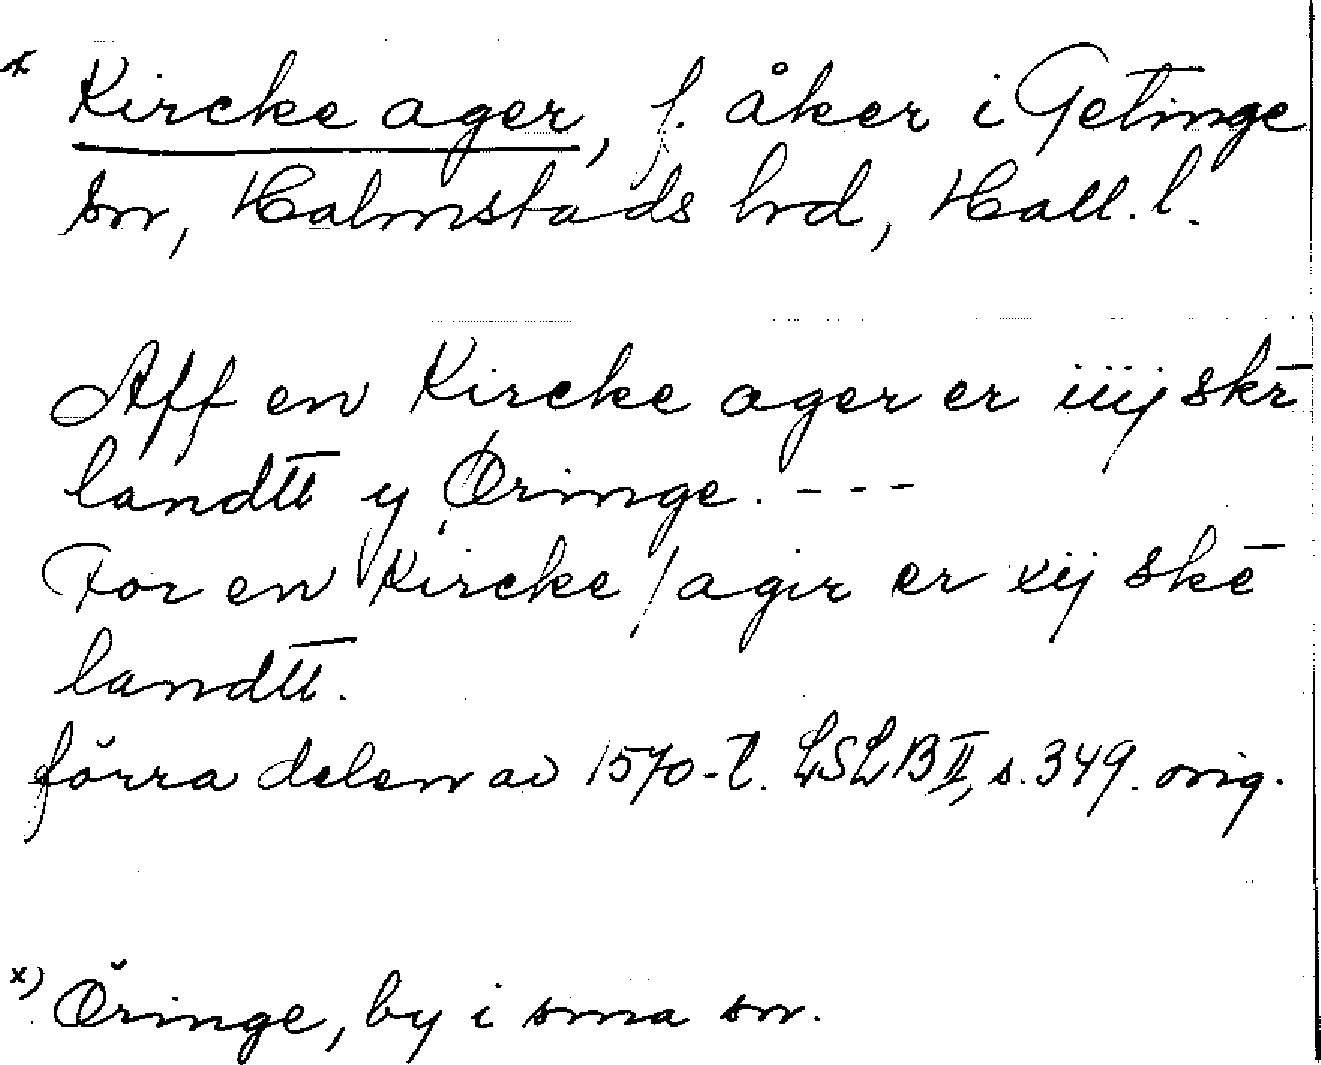 x Kircke ager, f. åker i Getinge
sn, Halmstads hrd, Hall. l.
Aff en Kircke ager er iiij skr̄
landtt̄ y Øringe. - - -
For en Kircke / agir er xij skē
landtt̄.
förra delen av 1570-t. LSLB II, s. 349. orig.
x) Öringe, by i sma sn.